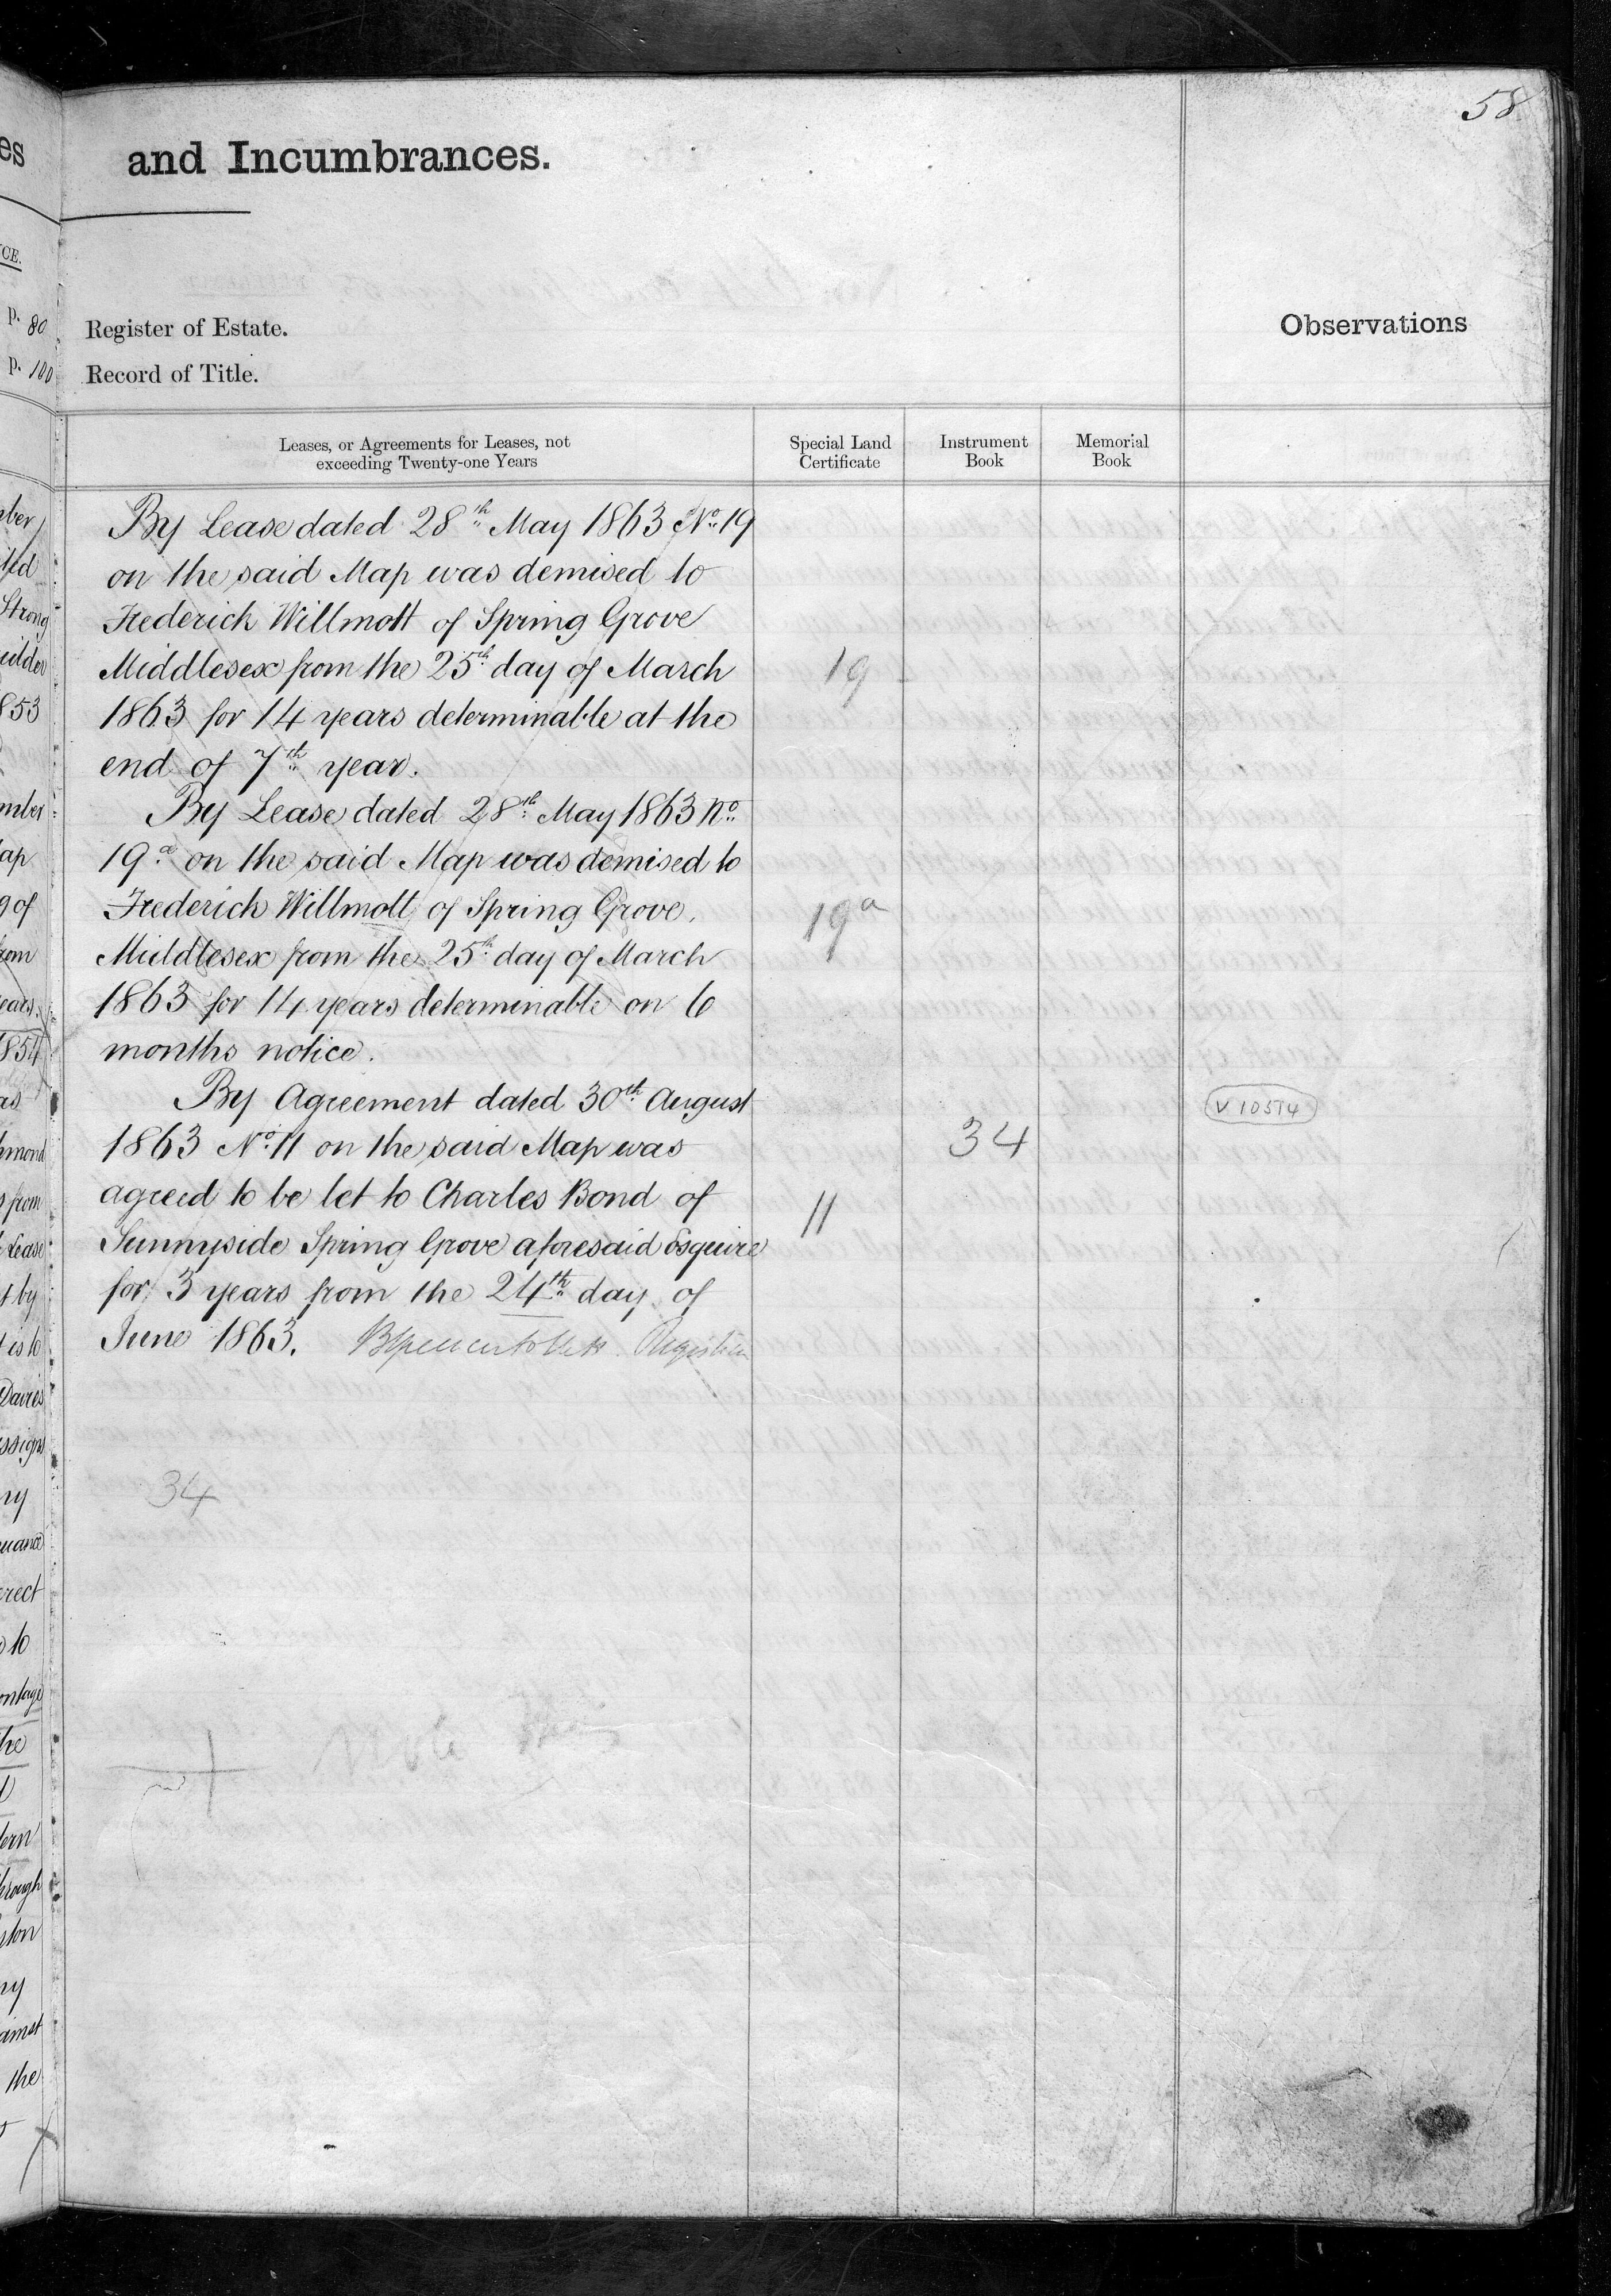 58
and Incumbrances.
Register of Estate.
Record of Title.
Observations
Leases, or Agreements for Leases, not
exceeding Twenty-one Years
Special Land
Certificate
Instrument
Book
Memorial
Book
By Lease dated 28th May 1863 No. 19
on the said Map was demised to
Frederick Willmott of Spring Grove
Middlesex from the 25th day of March
19
1863 for 14 years determinable at the
end of 7th year.
By Lease dated 28th May 1863 No.
19a on the said Map was demised to
Frederick Willmott of Spring Grove.
19a
Middlesex from the 25th day of March
1863 for 14 years determinable on 6
months notice.
By Agreement dated 30th August
V 10514
1863 No. 11 on the said Map was
34
agreed to be let to Charles Bond of
11
Sunnyside Spring Grove aforesaid Esquire
for 3 years from the 24th day of
June 1863. Registrar
34
CE.
p. 80
p. 100